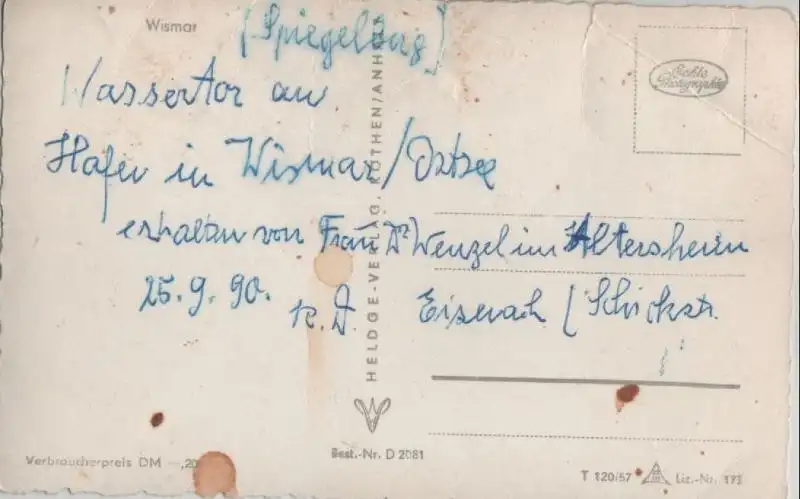 Wismar
[Spiegelbug]
Wassertor am
Hafen in Wismar/Ostsee
erhalten von Frau Dr Wenzel im Altersheim
25.9.90. Eisenach (Schickstr.
HELDGE-VERLAG, KÖTHEN/ANHALT
Echte
Photographie
Verbraucherpreis DM —,20
Best.-Nr. D 2081
T 120/57 Liz.-Nr. 173